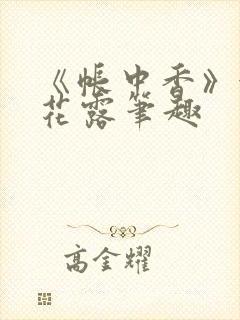 《帐中香》
花露笔趣
高金耀